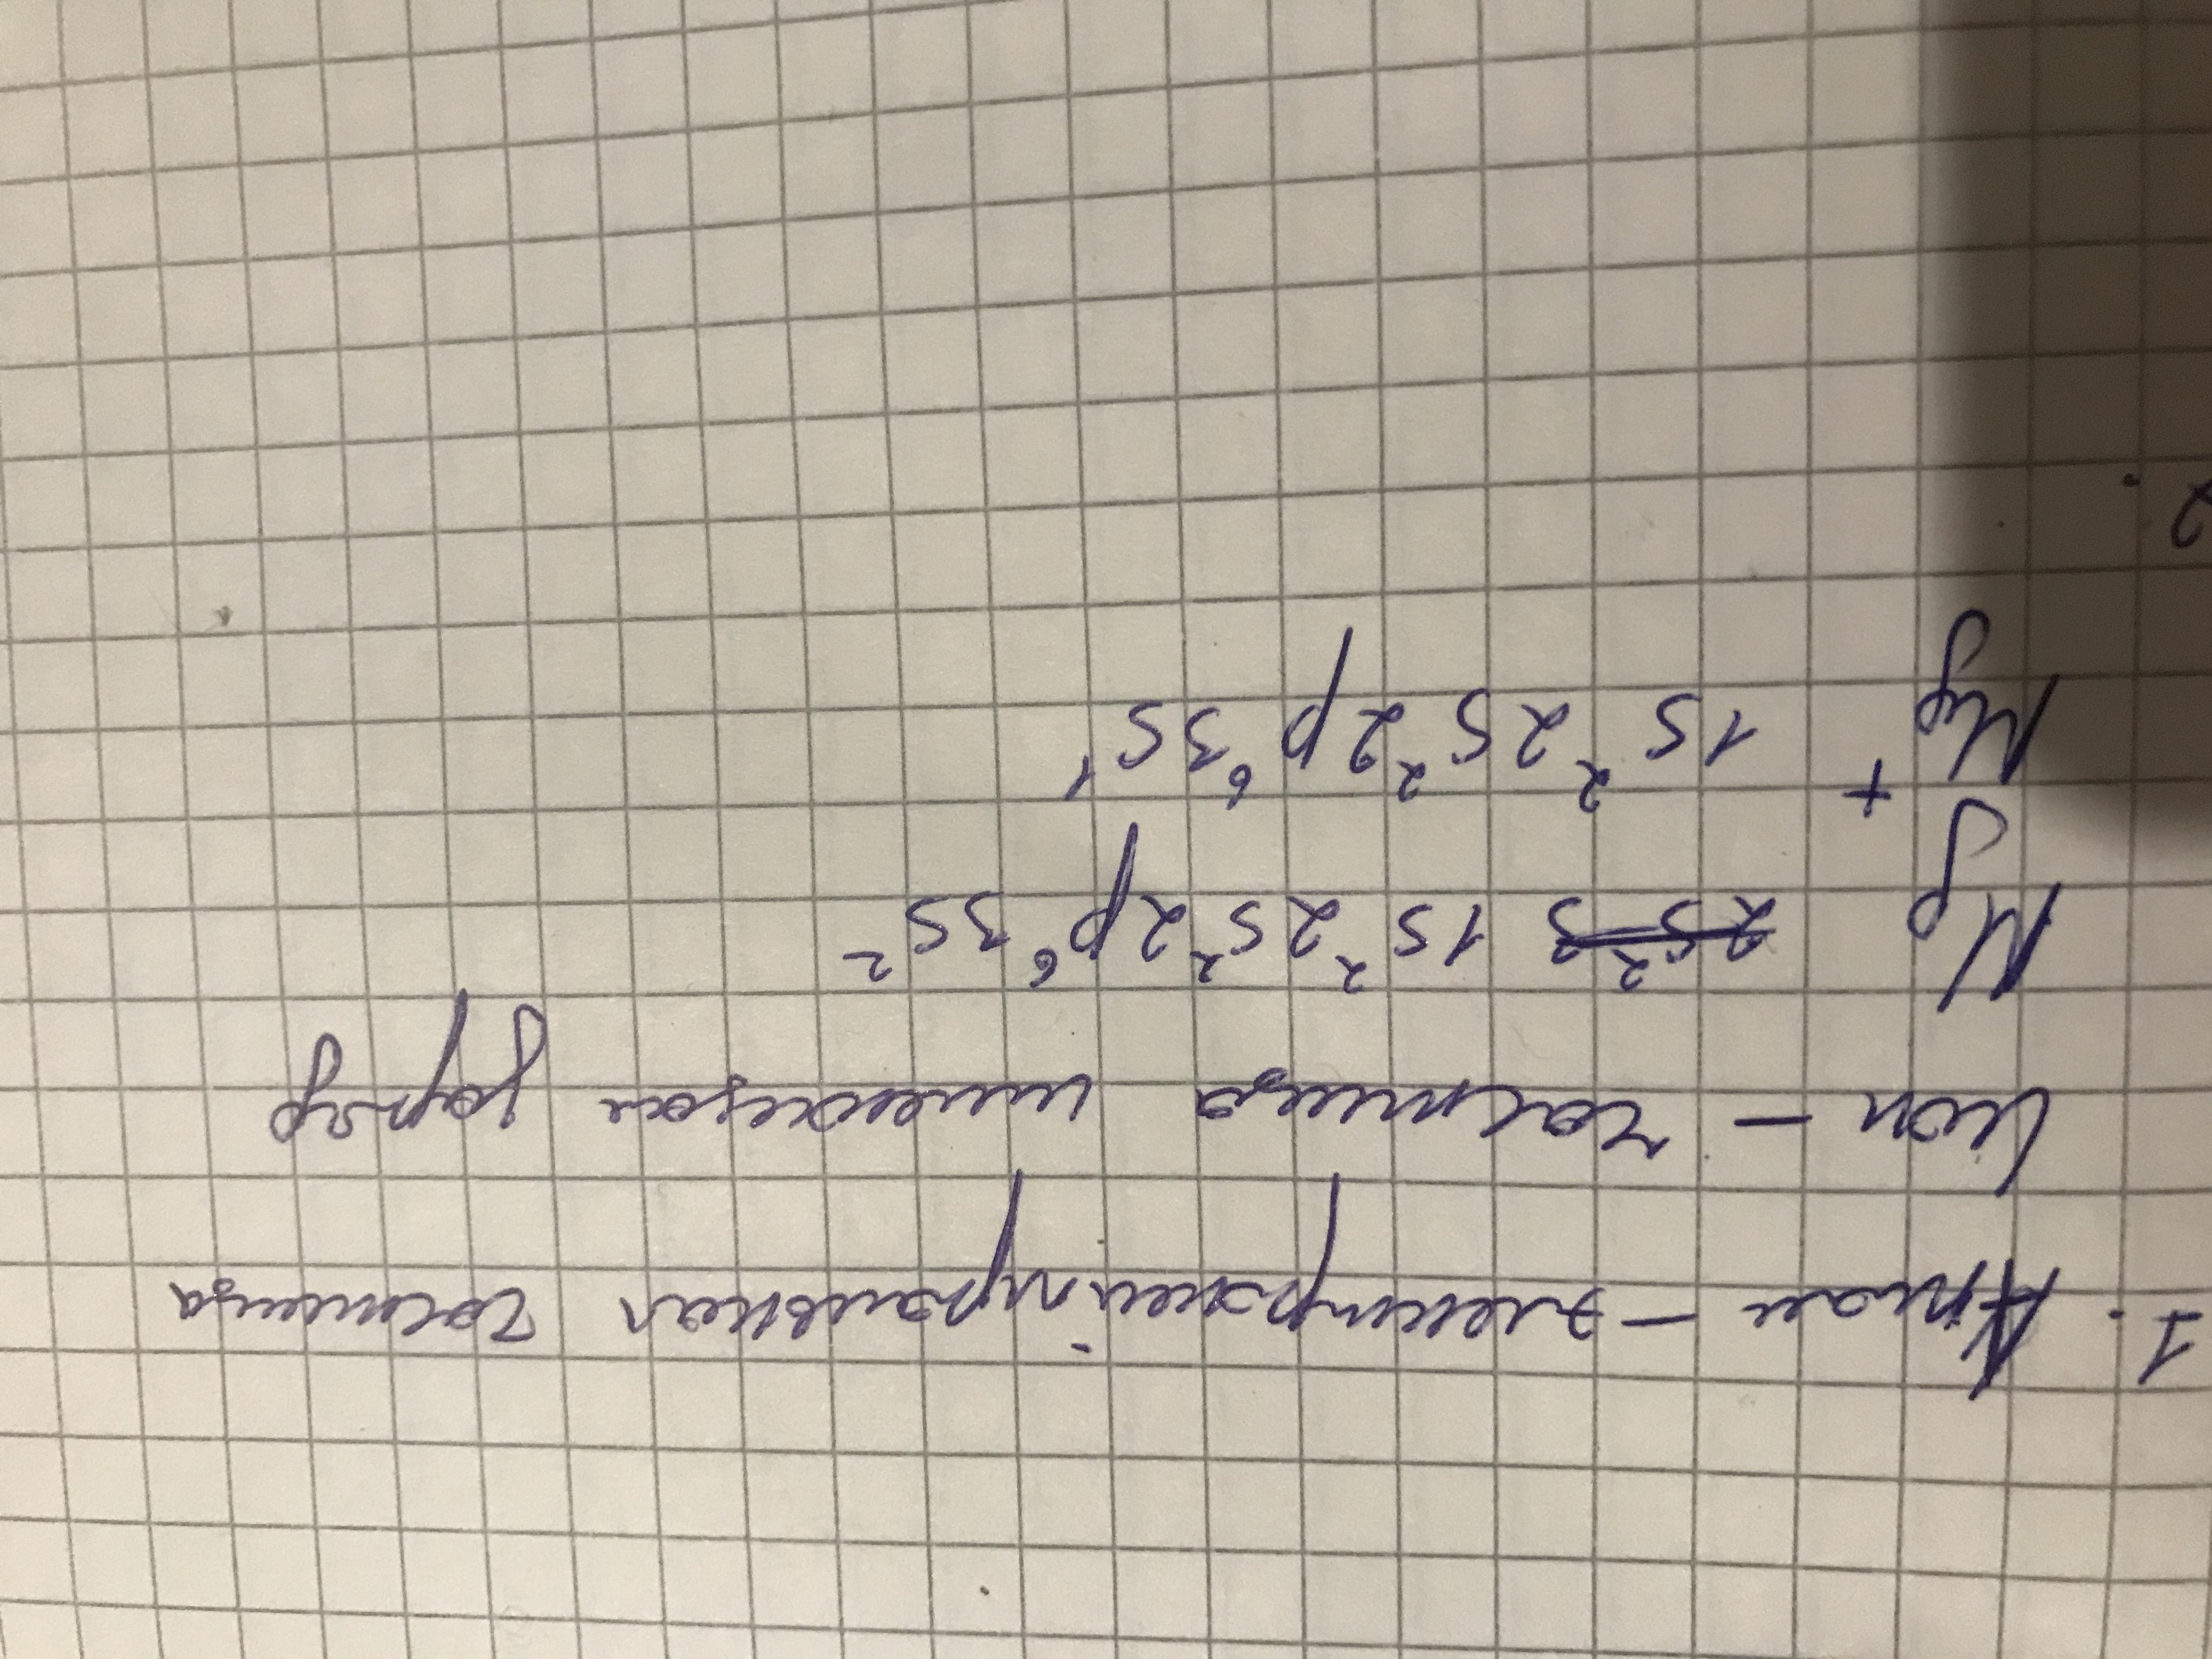 1. Атом – электронейтральная частица
Ион – частица имеющая заряд
Mg 2s² 3 1s² 2s² 2p⁶ 3s²
Mg⁺ 1s² 2s² 2p⁶ 3s¹
2.